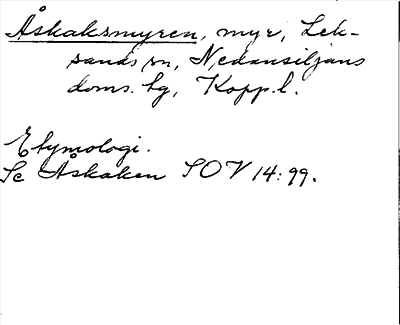 Åskaksmyren, myr, Lek-
sands sn, Nedansiljans
doms. hg, Kopp. l.
Etymologi.
Se Åskaken SOV 14:99.